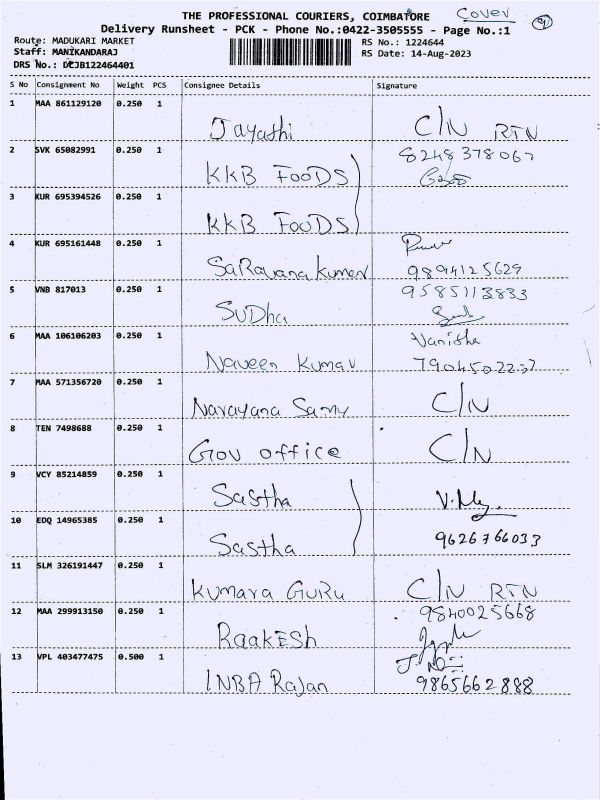 THE PROFESSIONAL COURIERS, COIMBATORE
Cover
Delivery Runsheet - PCK - Phone No.:0422-3505555 - Page No.:1
Route: MADUKARI MARKET
RS No.: 1224644
Staff: MANIKANDARAJ
RS Date: 14-Aug-2023
DRS No.: DCJB122464401
S No Consignment No Weight PCS Consignee Details Signature
1 MAA 861129120 0.250 1
Jayathi C/N RTN
2 SVK 65082991 0.250 1 8248378067
KKB FOODS
3 KUR 695394526 0.250 1
KKB FOODS
4 KUR 695161448 0.250 1
Saravana Kumar 9894125629
5 VNB 817013 0.250 1 9585113833
SUDha
6 MAA 106106203 0.250 1 Vanitha
Naveen Kumar 7904502237
7 MAA 571356720 0.250 1
Narayana Samy C/N
8 TEN 7498688 0.250 1
Gov office C/N
9 VCY 85214859 0.250 1
Sastha
10 EDQ 14965385 0.250 1
Sastha 9626766033
11 SLM 326191447 0.250 1
Kumara GuRu C/N RTN
12 MAA 299913150 0.250 1 9840025668
RaakESh
13 VPL 403477475 0.500 1
INBA Rajan 9865662888